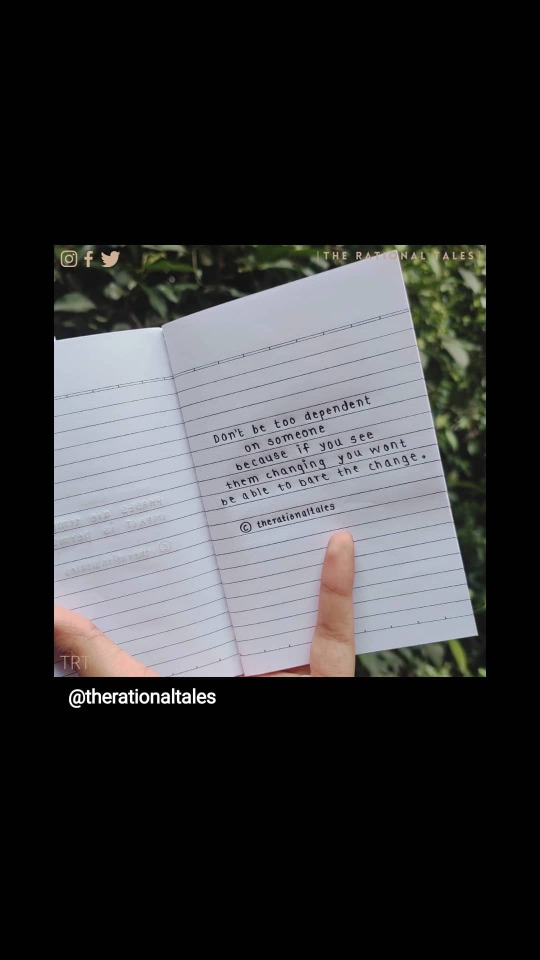 |THE RATIONAL TALES|
DON'T be too dependent
on someone
because if you see
them changing you wont
be able to bare the change.
© therationaltales
TRT
@therationaltales